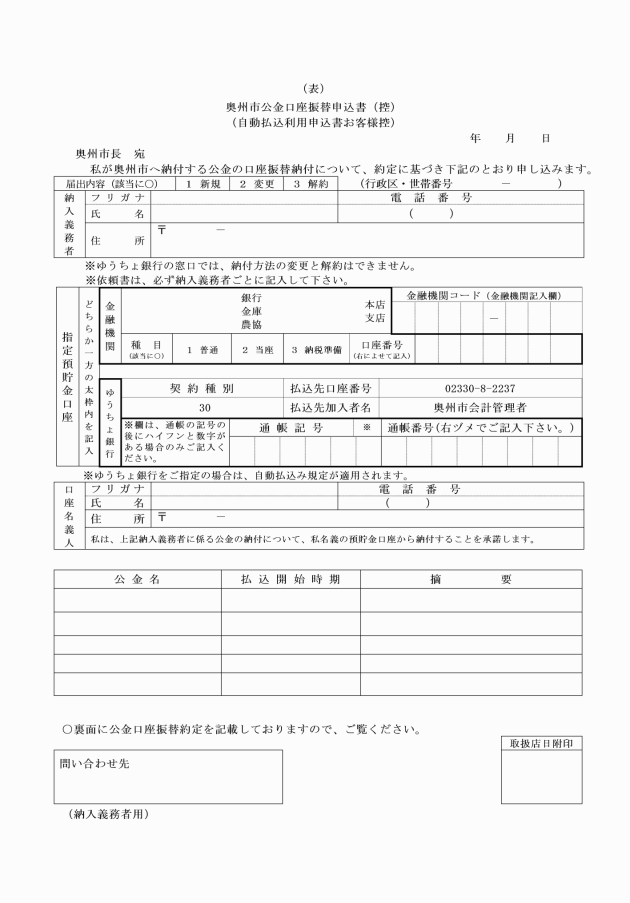 （表）
奥州市公金口座振替申込書（控）
（自動払込利用申込書お客様控）
年　月　日
奥州市長　宛
私が奥州市へ納付する公金の口座振替納付について、約定に基づき下記のとおり申し込みます。
届出内容（該当に〇）　1 新規　2 変更　3 解約　（行政区・世帯番号　－　）
納入義務者
フリガナ　電話番号
氏名　（　）
住所　〒　－
※ゆうちょ銀行の窓口では、納付方法の変更と解約はできません。
※依頼書は、必ず納入義務者ごとに記入して下さい。
指定預貯金口座
どちらか一方の太枠内を記入
金融機関
銀行
金庫
農協
本店
支店
金融機関コード（金融機関記入欄）
－
種目
（該当に〇）
1 普通　2 当座　3 納税準備
口座番号
（右によせて記入）
ゆうちょ銀行
契約種別　払込先口座番号　02330-8-2237
30　払込先加入者名　奥州市会計管理者
※欄は、通帳の記号の
後にハイフンと数字が
ある場合のみご記入く
ださい。
通帳記号　※　通帳番号(右ヅメでご記入下さい。)
※ゆうちょ銀行をご指定の場合は、自動払込み規定が適用されます。
口座名義人
フリガナ　電話番号
氏名　（　）
住所　〒　－
私は、上記納入義務者に係る公金の納付について、私名義の預貯金口座から納付することを承諾します。
公金名　払込開始時期　摘要
〇裏面に公金口座振替約定を記載しておりますので、ご覧ください。
取扱店日附印
問い合わせ先
（納入義務者用）